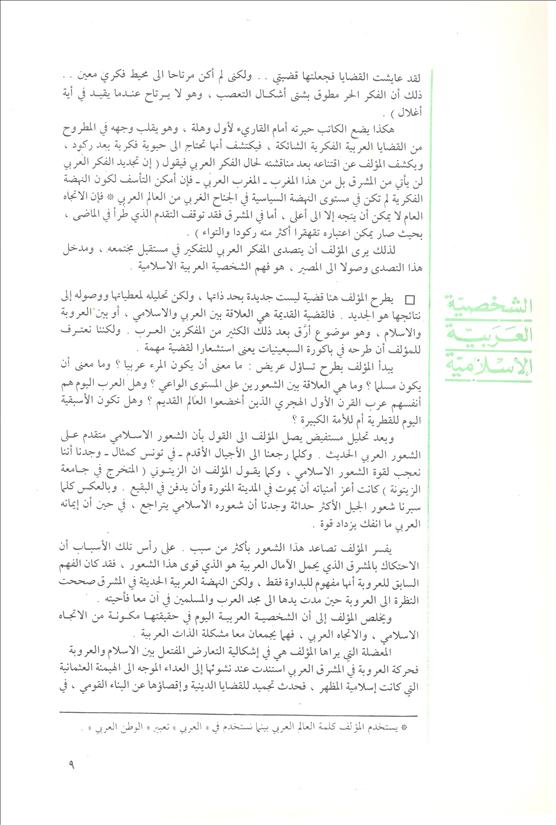 لقد عايشت القضايا فجعلتها قضيتي . . ولكنى لم أكن مرتاحا الى محيط فكري معين . .
ذلك أن الفكر الحر مطوق بشتى أشكال التعصب ، وهو لا يرتاح عندما يقيد في أية
أغلال ) .
هكذا يضع الكاتب حيرته أمام القاريء لأول وهلة ، وهو يقلب وجهه في المطروح
من القضايا العربية الفكرية الشائكة ، فيكتشف أنها تحتاج الى حيوية فكرية بعد ركود ،
ويكشف المؤلف عن اقتناعه بعد مناقشته لحال الفكر العربي فيقول ( إن تجديد الفكر العربي
لن يأتي من المشرق بل من هذا المغرب ـ المغرب العربي ـ فإن أمكن التأسف لكون النهضة
الفكرية لم تكن في مستوى النهضة السياسية في الجناح الغربي من العالم العربي * فإن الاتجاه
العام لا يمكن أن يتجه إلا الى أعلى ، أما في المشرق فقد توقف التقدم الذي طرأ في الماضى ،
بحيث صار يمكن اعتباره تقهقرا أكثر منه ركودا والتواء ) .
لذلك يرى المؤلف أن يتصدى المفكر العربي للتفكير في مستقبل مجتمعه ، ومدخل
هذا التصدى وصولا الى المصير ، هو فهم الشخصية العربية الاسلامية .
الشخصيّة
العَربيّة
الاسْلاميّة
□ يطرح المؤلف هنا قضية ليست جديدة بحد ذاتها ، ولكن تحليله لمعطياتها ووصوله إلى
نتائجها هو الجديد . فالقضية القديمة هي العلاقة بين العربي والاسلامي ، أو بين العروبة
والاسلام ، وهو موضوع أرّق بعد ذلك الكثير من المفكرين العرب . ولكننا نعترف
للمؤلف أن طرحه في باكورة السبعينيات يعنى استشعارا لقضية مهمة .
يبدأ المؤلف بطرح تساؤل عريض : ما معنى أن يكون المرء عربيا ؟ وما معنى أن
يكون مسلما ؟ وما هي العلاقة بين الشعورين على المستوى الواعي ؟ وهل العرب اليوم هم
أنفسهم عرب القرن الأول الهجري الذين أخضعوا العالم القديم ؟ وهل تكون الأسبقية
اليوم للقطرية أم للأمة الكبيرة ؟
وبعد تحليل مستفيض يصل المؤلف الى القول بأن الشعور الاسلامي متقدم على
الشعور العربي الحديث . وكلما رجعنا الى الأجيال الأقدم ـ في تونس كمثال ـ وجدنا أننا
نعجب لقوة الشعور الاسلامي ، وكما يقول المؤلف ان الزيتوني ( المتخرج في جامعة
الزيتونة ) كانت أعز أمنياته أن يموت في المدينة المنورة وأن يدفن في البقيع . وبالعكس كلما
سبرنا شعور الجيل الأكثر حداثة وجدنا أن شعوره الاسلامي يتراجع ، في حين أن إيمانه
العربي ما انفك يزداد قوة .
يفسر المؤلف تصاعد هذا الشعور بأكثر من سبب . على رأس تلك الأسباب أن
الاحتكاك بالمشرق الذي يحمل الآمال العربية هو الذي قوى هذا الشعور ، فقد كان الفهم
السابق للعروبة أنها مفهوم للبداوة فقط ، ولكن النهضة العربية الحديثة في المشرق صححت
النظرة الى العروبة حين مدت يدها الى مجد العرب والمسلمين في آن معا فأحيته .
ويخلص المؤلف إلى أن الشخصية العربية اليوم في حقيقتها مكونة من الاتجاه
الاسلامي ، والاتجاه العربي ، فهما يجمعان معا مشكلة الذات العربية .
المعضلة التي يراها المؤلف هي في إشكالية التعارض المفتعل بين الاسلام والعروبة
فحركة العروبة في المشرق العربي استندت عند نشوئها إلى العداء الموجه الى الهيمنة العثمانية
التي كانت إسلامية المظهر ، فحدث تجميد للقضايا الدينية وإقصاؤها عن البناء القومي ، في
* يستخدم المؤلف كلمة العالم العربي بينما نستخدم في « العربي » تعبير « الوطن العربي » .
٩